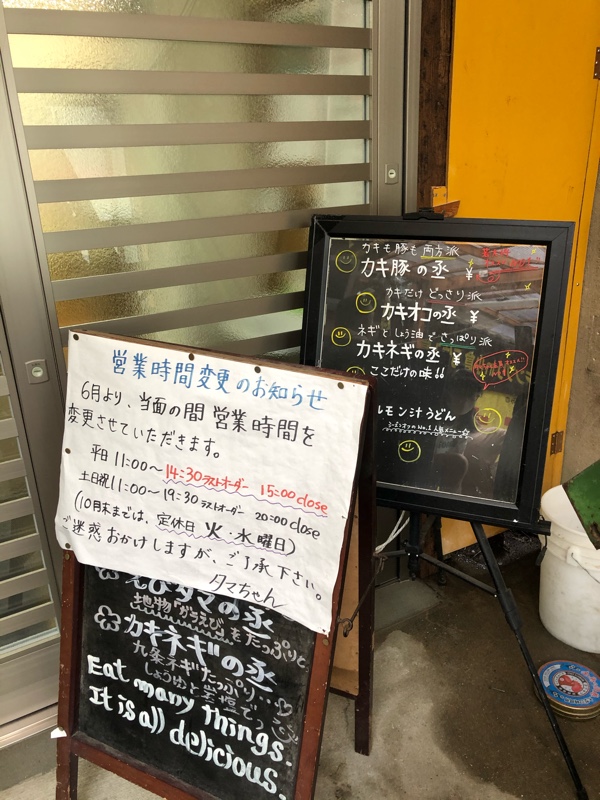 営業時間変更のお知らせ
6月より、当面の間 営業時間を
変更させていただきます。
平日 11:00〜14:30 ラストオーダー 15:00 close
土日祝 11:00〜19:30 ラストオーダー 20:00 close
(10月末までは、定休日 火・水曜日)
ご迷惑おかけしますが、ご了承下さい。
タマちゃん
えびタマの丞
地物「がらえび」をたっぷりと
カキネギの丞
九条ネギたっぷり
しょうゆと岩塩で
Eat many things.
It is all delicious.
カキも豚も 両方派
カキ豚の丞 ¥
カキだけ どっさり派
カキオコの丞 ¥
ネギとしょう油で さっぱり派
カキネギの丞 ¥
ここだけの味!!
ルモン汁うどん